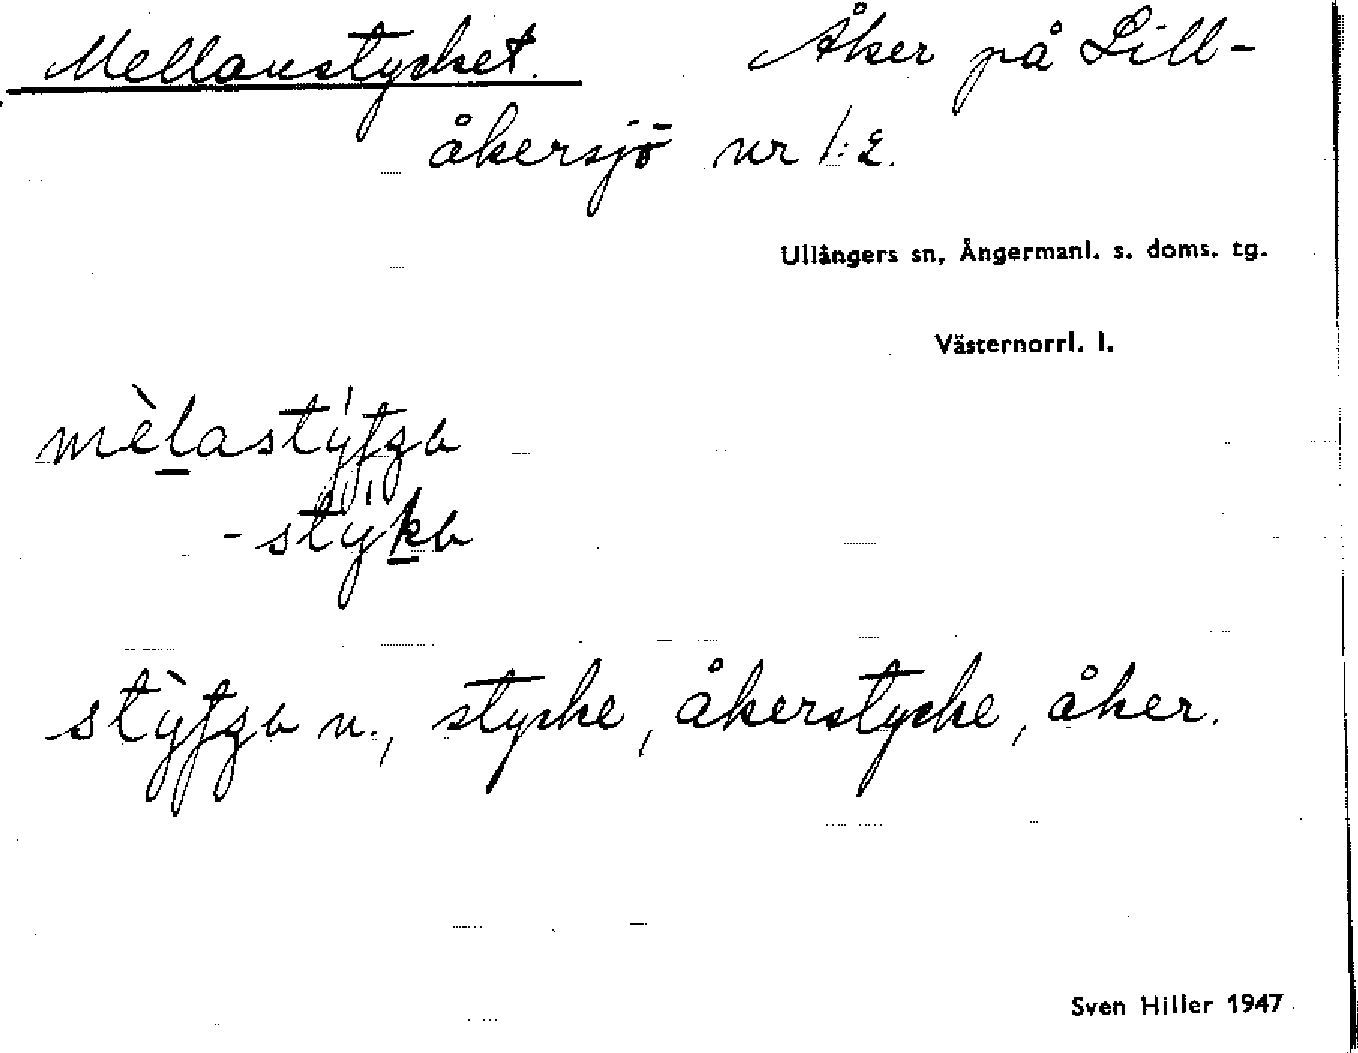 Mellanstycket. Åker på Lill-
åkersjö nr 1:2.
Ullångers sn, Ångermanl. s. doms. tg.
Västernorrl. l.
n., stycke, åkerstycke, åker.
Sven Hiller 1947